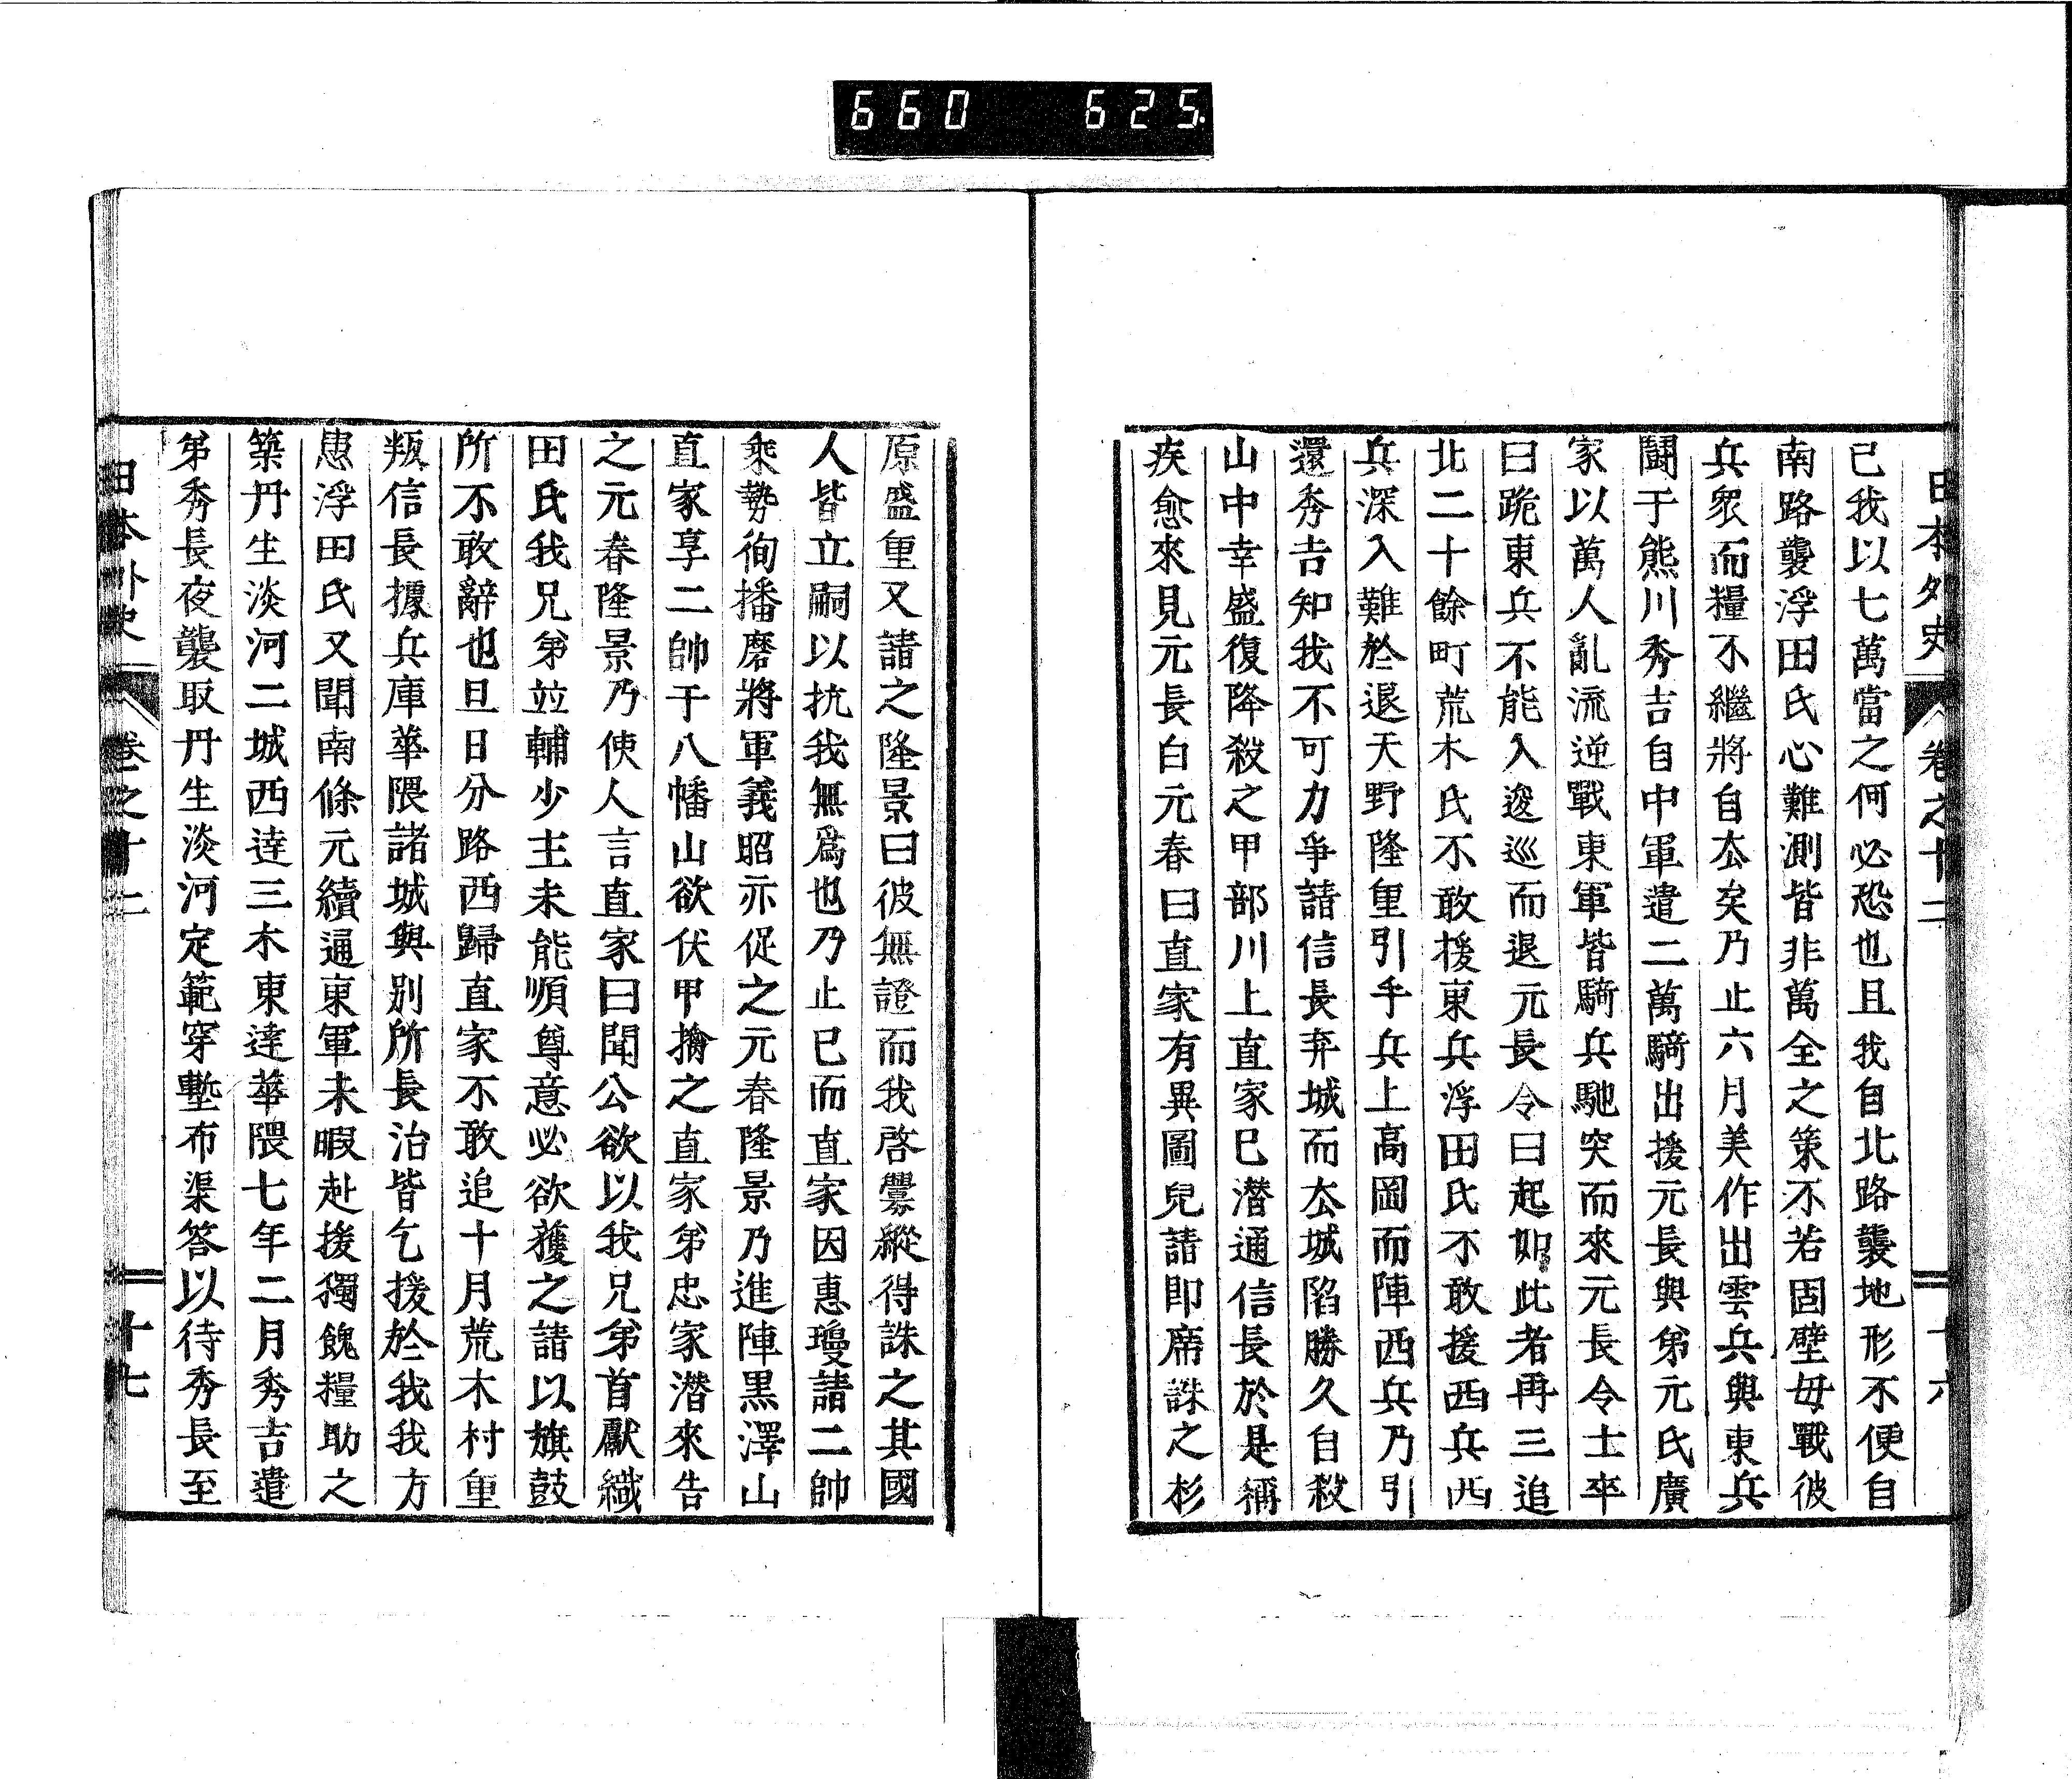 660 625
日本外史 卷之十二 十六
己我以七萬當之何必恐也且我自北路襲地形不便自
南路襲浮田氏心難測皆非萬全之策不若固壁毋戰彼
兵衆而糧不繼將自厺矣乃止六月美作出雲兵與東兵
鬪于熊川秀吉自中軍遣二萬騎出援元長與弟元氏廣
家以萬人亂流逆戰東軍皆騎兵馳突而來元長令士卒
曰跪東兵不能入逡巡而退元長令曰起如此者再三追
北二十餘町荒木氏不敢援東兵浮田氏不敢援西兵西
兵深入難於退天野隆重引手兵上高岡而陣西兵乃引
還秀吉知我不可力爭請信長弃城而厺城陷勝久自殺
山中幸盛復降殺之甲部川上直家已潛通信長於是稱
疾愈來見元長白元春曰直家有異圖兒請即席誅之杉
原盛重又請之隆景曰彼無證而我啓釁縱得誅之其國
人皆立嗣以抗我無爲也乃止已而直家因惠瓊請二帥
乘勢徇播磨將軍義昭亦促之元春隆景乃進陣黒澤山
直家享二帥于八幡山欲伏甲擒之直家弟忠家潛來告
之元春隆景乃使人言直家曰聞公欲以我兄弟首獻織
田氏我兄弟竝輔少主未能順尊意必欲獲之請以旗鼓
所不敢辭也旦日分路西歸直家不敢追十月荒木村重
叛信長據兵庫華隈諸城與別所長治皆乞援於我我方
患浮田氏又聞南條元續通東軍未暇赴援獨餽糧助之
築丹生淡河二城西達三木東達華隈七年二月秀吉遣
弟秀長夜襲取丹生淡河定範穿塹布渠答以待秀長至
日本外史 卷之十二 十七